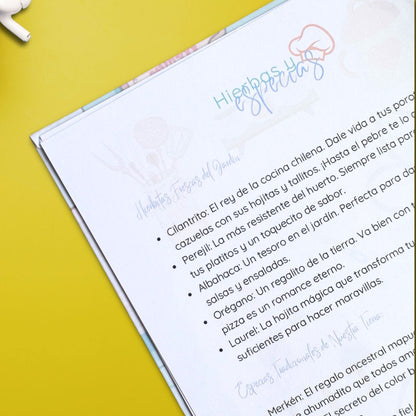 Hierbas y
especias
Hierbitas Frescas del Jardín
Cilantrito: El rey de la cocina chilena. Dale vida a tus porot
cazuelas con sus hojitas y tallitos. ¡Hasta el pebre te lo a
Perejil: La más resistente del huerto. Siempre lista par
tus platitos y un toquecito de sabor.
Albahaca: Un tesoro en el jardín. Perfecta para da
salsas y ensaladas.
Orégano: Un regalito de la tierra. Va bien con t
pizza es un romance eterno.
Laurel: La hojita mágica que transforma tu
suficientes para hacer maravillas.
Especias Tradicionales de Nuestra Tierra:
Merkén: El regalo ancestral mapu
ahumadito que todos am
El secreto del color b